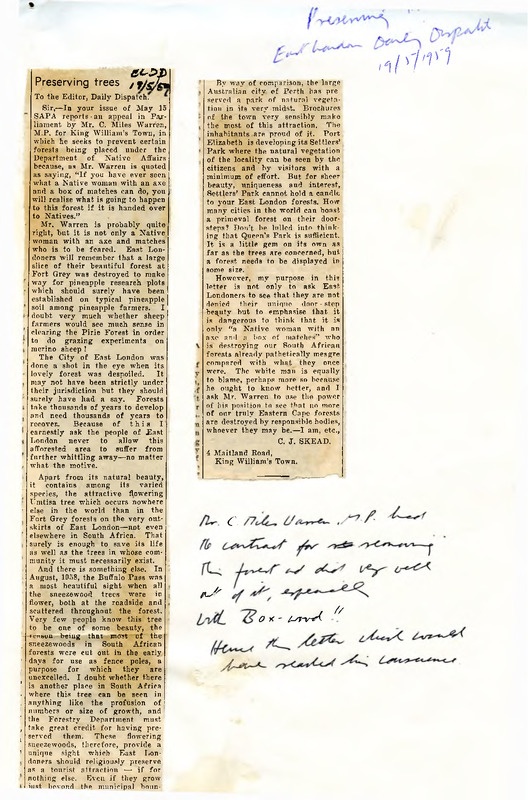 Preserving
East London Daily Dispatch
19/5/1959
ELDD
19/5/59
Preserving trees
To the Editor, Daily Dispatch.
Sir,—In your issue of May 15
SAPA reports an appeal in Par-
liament by Mr. C. Miles Warren,
M.P. for King William's Town, in
which he seeks to prevent certain
forests being placed under the
Department of Native Affairs
because, as Mr. Warren is quoted
as saying, "If you have ever seen
what a Native woman with an axe
and a box of matches can do, you
will realise what is going to happen
to this forest if it is handed over
to Natives."
Mr. Warren is probably quite
right, but it is not only a Native
woman with an axe and matches
who is to be feared. East Lon-
doners will remember that a large
slice of their beautiful forest at
Fort Grey was destroyed to make
way for pineapple research plots
which should surely have been
established on typical pineapple
soil among pineapple farmers. I
doubt very much whether sheep
farmers would see much sense in
clearing the Pirie Forest in order
to do grazing experiments on
merino sheep!
The City of East London was
done a shot in the eye when its
lovely forest was despoiled. It
may not have been strictly under
their jurisdiction but they should
surely have had a say. Forests
take thousands of years to develop
and need thousands of years to
recover. Because of this I
earnestly ask the people of East
London never to allow this
afforested area to suffer from
further whittling away—no matter
what the motive.
Apart from its natural beauty,
it contains among its varied
species, the attractive flowering
Umtisa tree which occurs nowhere
else in the world than in the
Fort Grey forests on the very out-
skirts of East London—not even
elsewhere in South Africa. That
surely is enough to save its life
as well as the trees in whose com-
munity it must necessarily exist.
And there is something else. In
August, 1958, the Buffalo Pass was
a most beautiful sight when all
the sneezewood trees were in
flower, both at the roadside and
scattered throughout the forest.
Very few people know this tree
to be one of some beauty, the
reason being that most of the
sneezewoods in South African
forests were cut out in the early
days for use as fence poles, a
purpose for which they are
unexcelled. I doubt whether there
is another place in South Africa
where this tree can be seen in
anything like the profusion of
numbers or size of growth, and
the Forestry Department must
take great credit for having pre-
served them. These flowering
sneezewoods, therefore, provide a
unique sight which East Lon-
doners should religiously preserve
as a tourist attraction — if for
nothing else. Even if they grow
just beyond the municipal boun-
By way of comparison, the large
Australian city of Perth has pre
served a park of natural vegeta-
tion in its very midst. Brochures
of the town very sensibly make
the most of this attraction. The
inhabitants are proud of it. Port
Elizabeth is developing its Settlers'
Park where the natural vegetation
of the locality can be seen by the
citizens and by visitors with a
minimum of effort. But for sheer
beauty, uniqueness and interest,
Settlers' Park cannot hold a candle
to your East London forests. How
many cities in the world can boast
a primeval forest on their door-
steps? Don't be lulled into think-
ing that Queen's Park is sufficient.
It is a little gem on its own as
far as the trees are concerned, but
a forest needs to be displayed in
some size.
However, my purpose in this
letter is not only to ask East
Londoners to see that they are not
denied their unique door-step
beauty but to emphasise that it
is dangerous to think that it is
only "a Native woman with an
axe and a box of matches" who
is destroying our South African
forests already pathetically meagre
compared with what they once
were. The white man is equally
to blame, perhaps more so because
he ought to know better, and I
ask Mr. Warren to use the power
of his position to see that no more
of our truly Eastern Cape forests
are destroyed by responsible bodies,
whoever they may be.—I am, etc.,
C. J. SKEAD.
4 Maitland Road,
King William's Town.
Mr. C Miles Warren, M.P. had
the contract for removing
this forest and did very well
out of it, especially
with Box-wood!!
Hence this letter which would
have reached his conscience